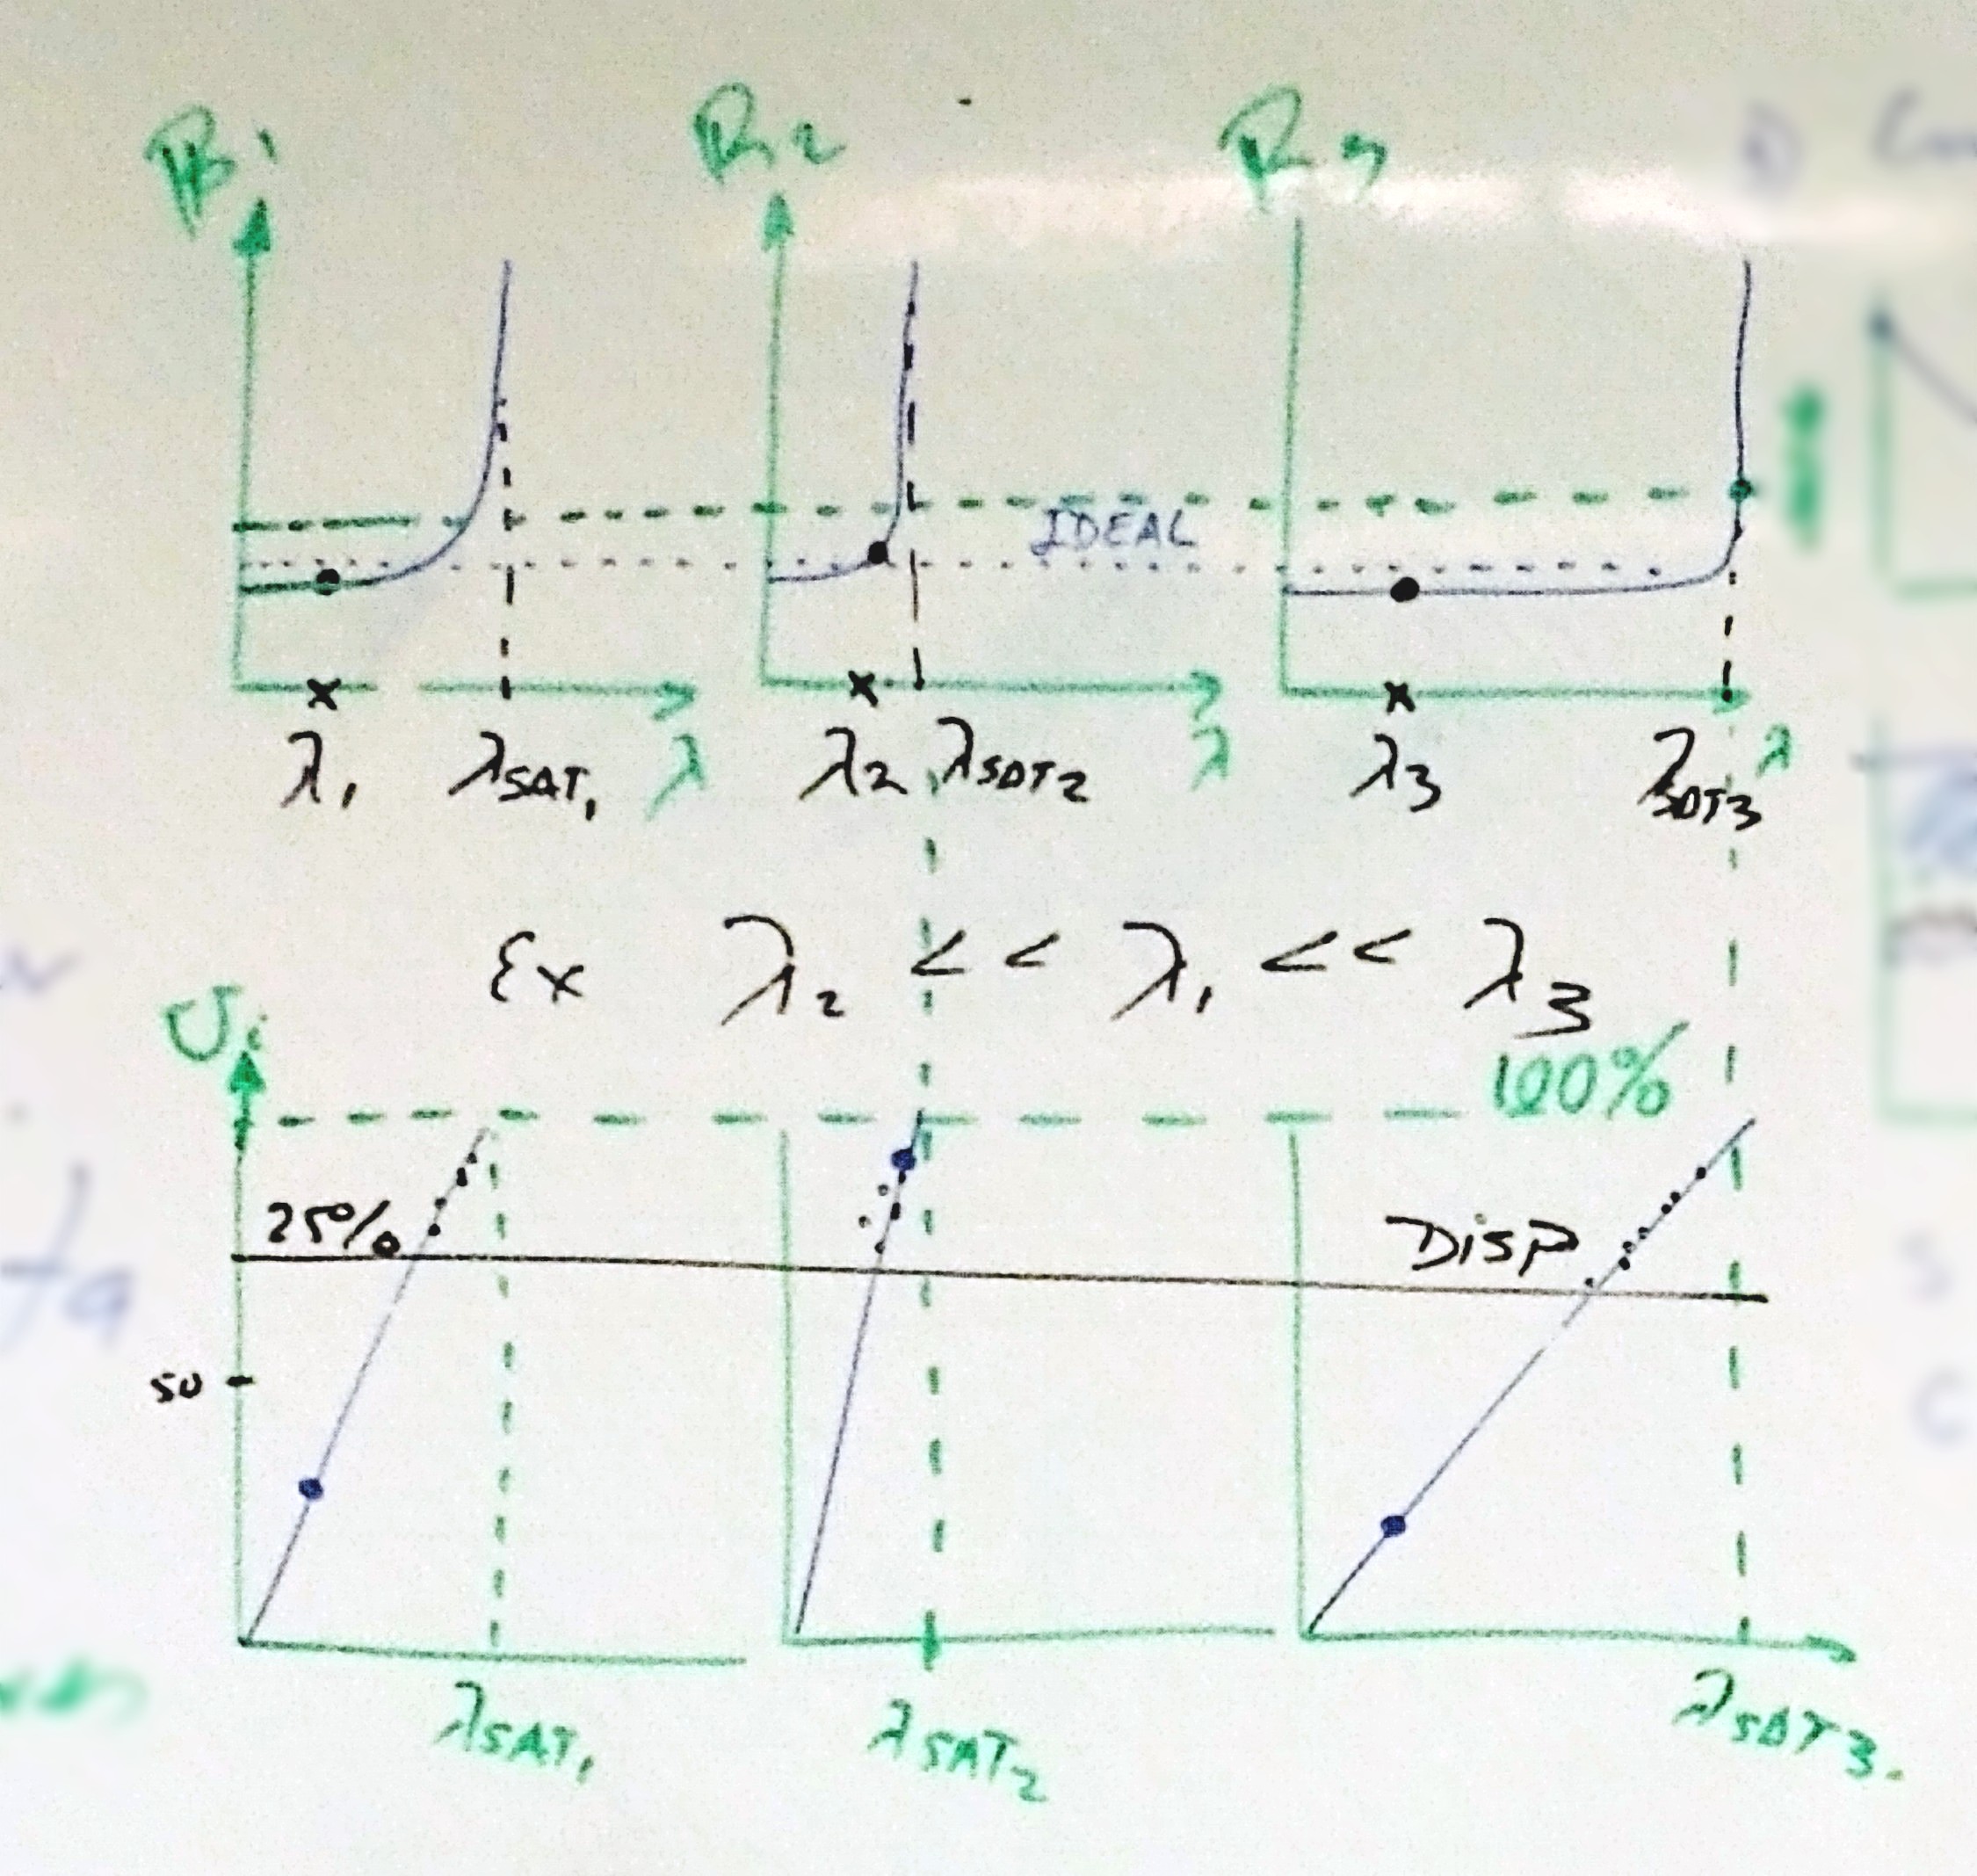 R1 R2 R3
IDEAL
λ1 λSAT1 λ λ2 λSAT2 λ λ3 λSAT3 λ
Ex λ2 << λ1 << λ3
Ui 100%
25% DISP
50
λSAT1 λSAT2 λSAT3.